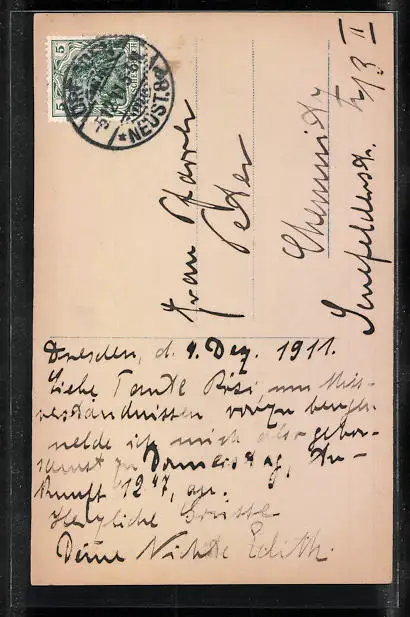 5
5
DEUTSCHES REICH
DRESDEN
*NEUST.8
Frau Pfarrer
Peter
Chemnitz
Senefelderstr. 13 II
Dresden, d. 4. Dez. 1911.
Liebe Tante Rösi, um Miss-
verständnissen vorzubeugen
melde ich mich also gehor-
samst zu Donnerstag, An-
kunft 12 47, an.
Herzliche Grüsse
Deine Nichte Edith.